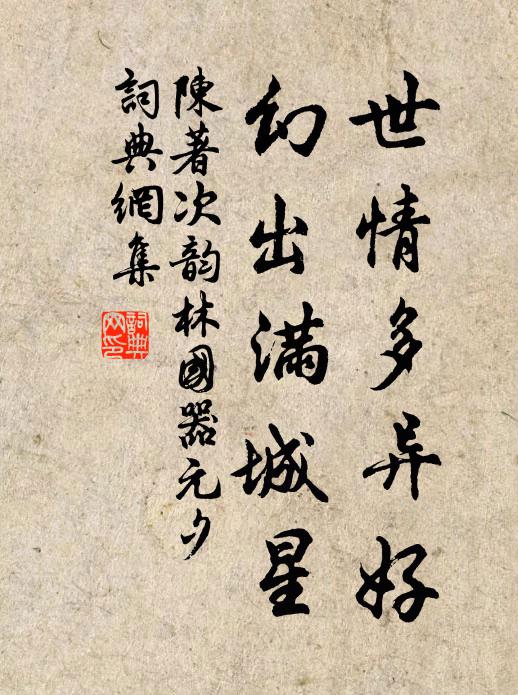 世情多异好
幻出滿城星
陳著次韵林國器元夕
詞典網集
詞典
网印